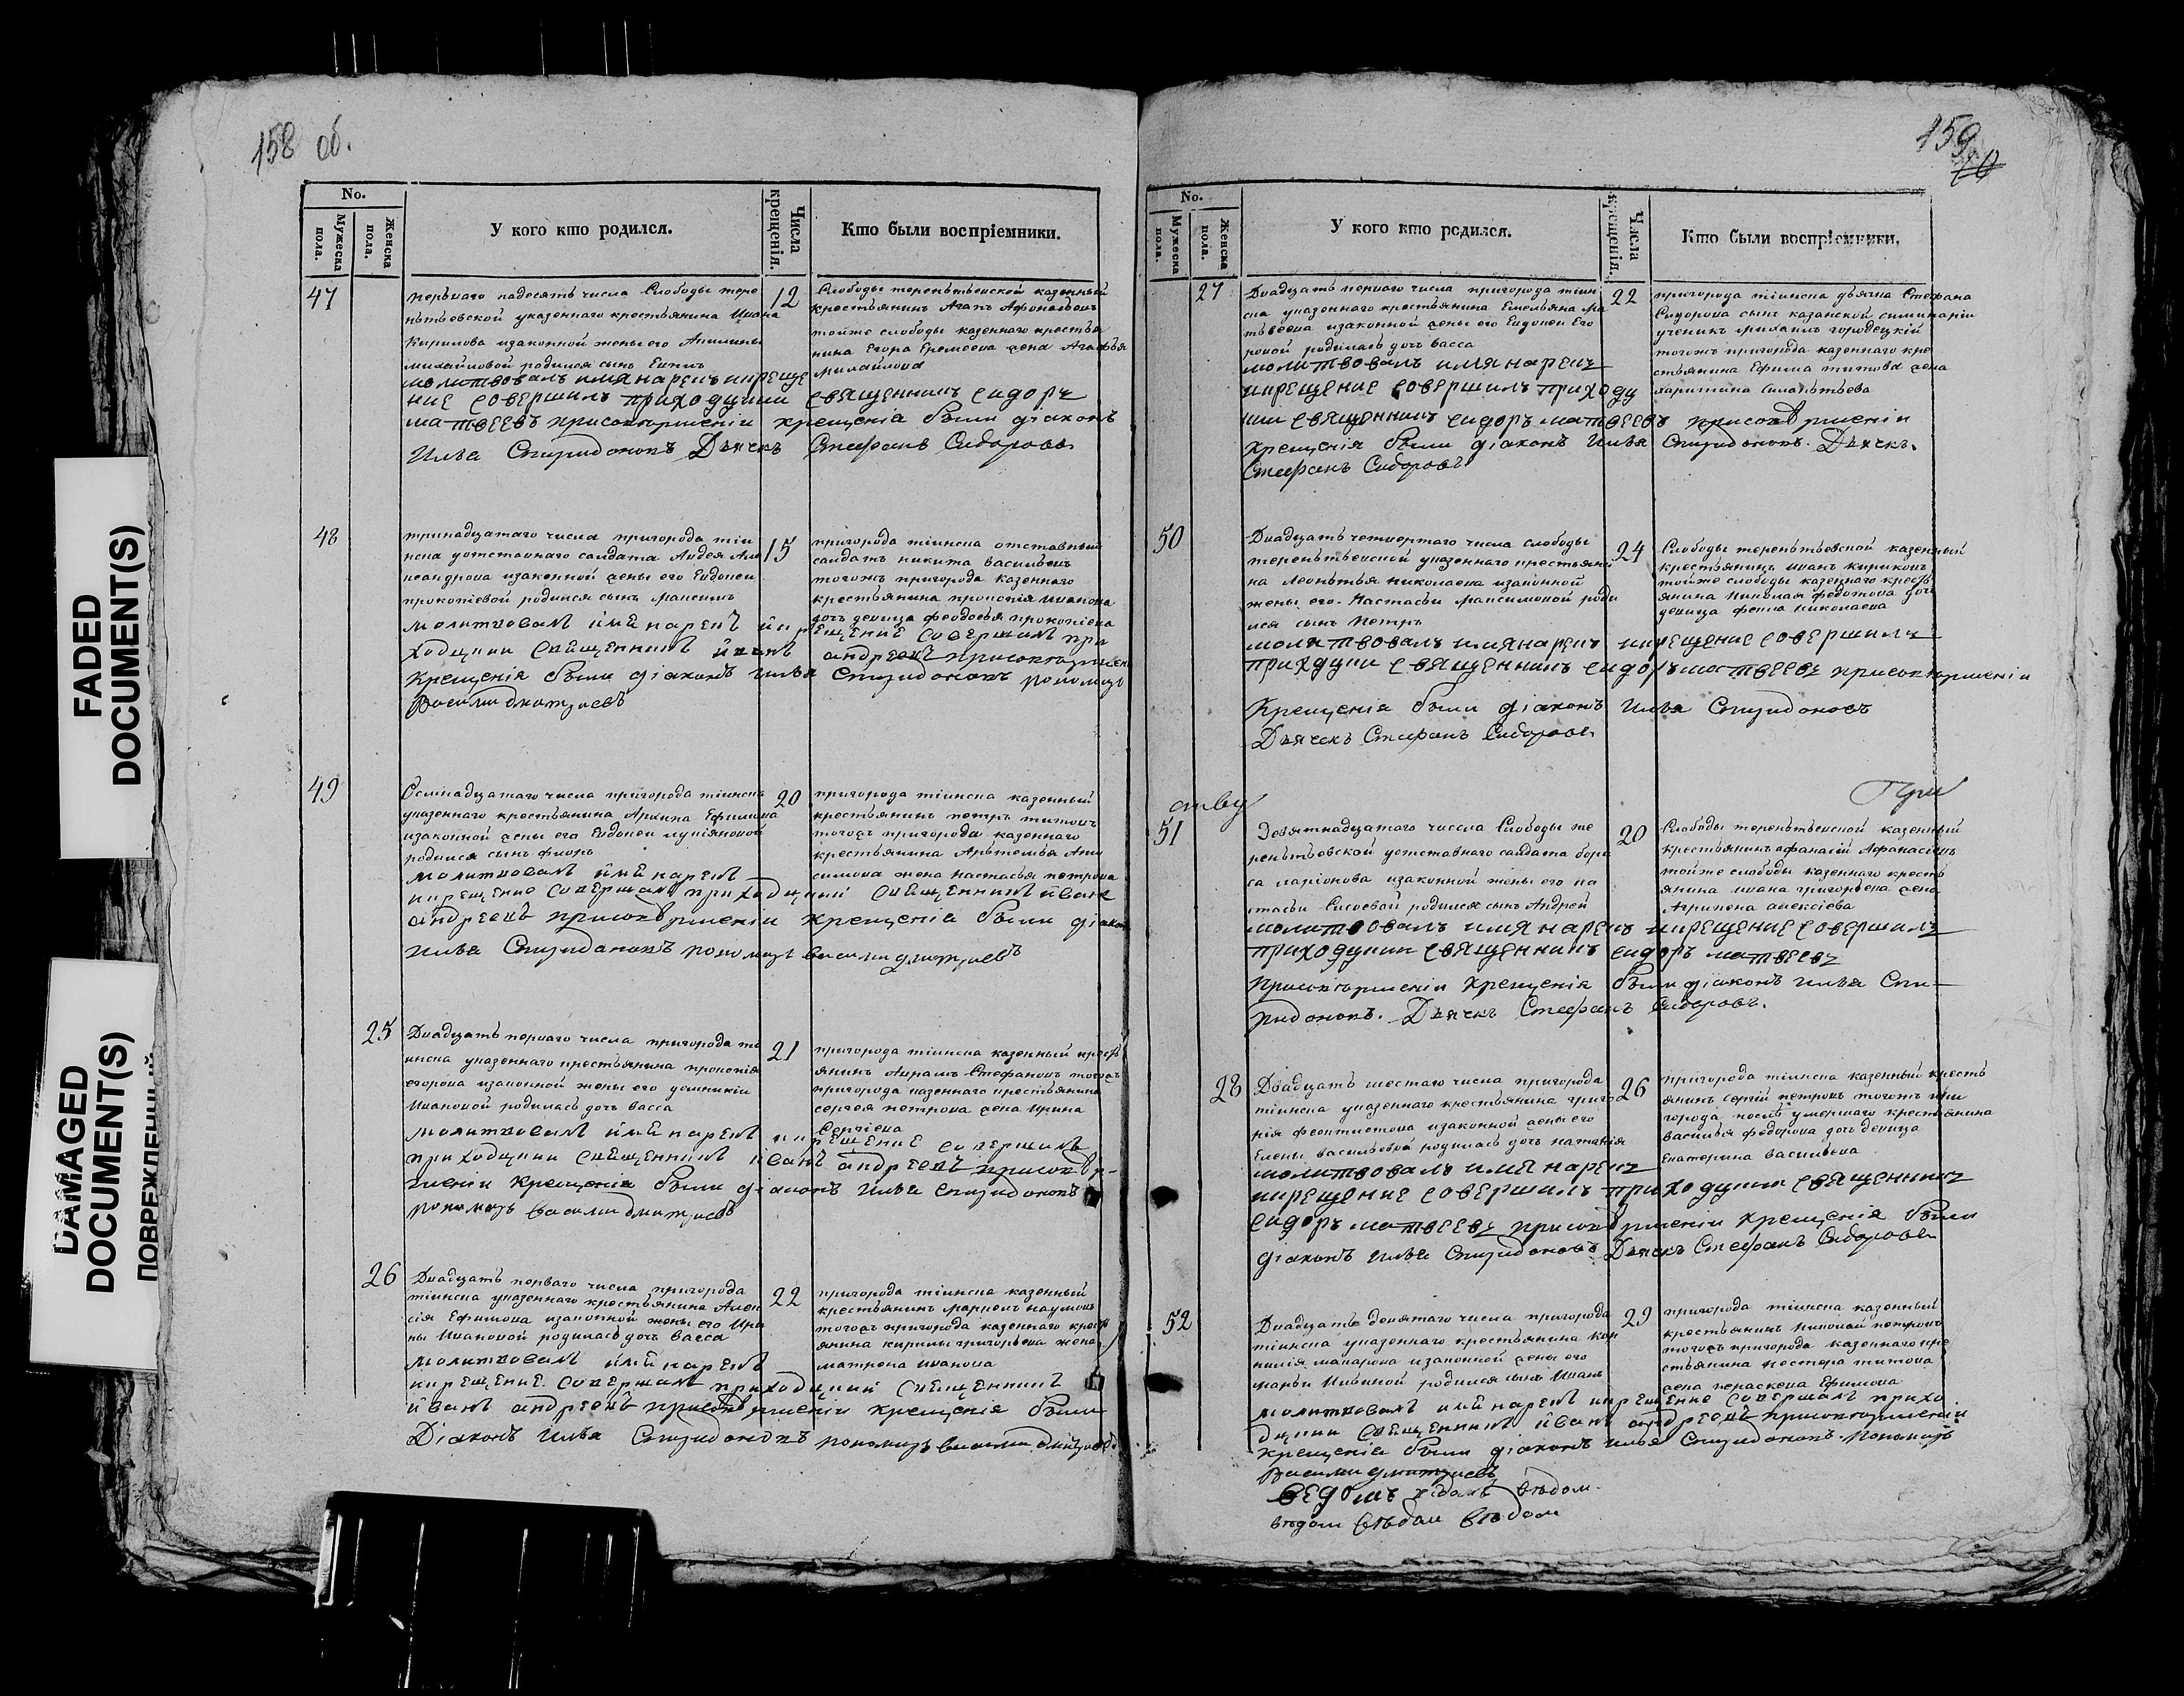 158 об.
No.
Мужеска пола.
Женска пола.
У кого кто родился.
Числа крещенія.
Кто были воспріемники.
47
первого надесять числа Слободы тере
нтьевской указеннаго крестьянина Ивана
Кирилова изаконной жены его Акилины
михайловой родился сынъ
молитвовалъ имя нарекъ икреще
ние совершилъ приходцкии священникъ сидоръ
матвеевъ присовершении крещенія были діаконъ
Илья Спиридоновъ Дьячекъ Стефанъ Сидоровъ
12
Слободы терентьевской казенный
крестьянинъ Агапъ Афонасьевъ
тойже слободы казеннаго крестья
нина Егора Еремеева жена Агафья
михайлова
48
тринадцатаго числа пригорода тіи
нска уотставнаго салдата Авдея Але
ксандрова изаконной жены его Евдокеи
прокопіевой родился сынъ максимъ
молитвовалъ имя нарекъ икрещение совершилъ при
ходцкии священникъ иванъ андреевъ присовершении
крещенія были діаконъ илья Спиридоновъ пономарь
Василии дмитриевъ
15
пригорода тіинска отставный
салдатъ никита васильевъ
тогожъ пригорода казеннаго
крестьянина прокопія иванова
дочь девица феодосья прокопіева
49
Осмнадцатаго числа пригорода тіинска
указеннаго крестьянина Архипа Ефимова
изаконной жены его Евдокеи лукіяновой
родился сынъ флоръ
молитвовалъ имя нарекъ
икрещение совершилъ приходцкии священникъ иванъ
андреевъ присовершении крещенія были діаконъ
илья Спиридоновъ пономарь василии дмитриевъ
20
пригорода тіинска казенный
крестьянинъ петръ титовъ
тогожъ пригорода казеннаго
крестьянина Артемья Ани
симова жена настасья петрова
25
Двадцать перваго числа пригорода ті
инска указеннаго крестьянина прокопія
егорова изаконной жены его домникіи
Ивановой родилась дочь васса
молитвовалъ имя нарекъ икрещение совершилъ
приходцкии священникъ иванъ андреевъ присовер-
шении крещенія были діаконъ илья спиридоновъ
пономарь василии дмитриевъ
21
пригорода тіинска казенный кресть
янинъ Авраамъ Стефановъ тогожъ
пригорода казеннаго крестьянина
сергея петрова жена Ирина
Сергіева
26
Двадцать перваго числа пригорода
тіинска указеннаго крестьянина Алек
сія Ефимова изаконной жены его Ири
ны Ивановой родилась дочь васса
молитвовалъ имя нарекъ
икрещение совершилъ приходцкии священникъ
иванъ андреевъ присовершении крещенія были
Діаконъ илья Спиридоновъ пономарь василии дмитриевъ
22
пригорода тіинска казенный
крестьянинъ маркелъ наумовъ
тогожъ пригорода казеннаго кресть
янина кирилы григорьева жена
матрона иванова
159
No.
Мужеска пола.
Женска пола.
У кого кто родился.
Числа крещенія.
Кто были воспріемники.
27
Двадцать перваго числа пригорода тіин
ска указеннаго крестьянина Емельяна Ма
твеева изаконной жены его Евдокеи Его
ровой родилась дочь васса
молитвовалъ имя нарекъ
икрещение совершилъ приходц
кии священникъ сидоръ матвеевъ присовершении
крещенія были діаконъ илья Спиридоновъ. Дьячекъ.
Стефанъ Сидоровъ
22
пригорода тіинска дьячка Стефана
Сидорова сынъ казанской симинаріи
ученикъ михаилъ городецкій
тогожъ пригорода казеннаго кре
стьянина Ефима титова жена
харитина
50
Двадцать четвертаго числа слободы
терентьевской указеннаго крестьяни
на Леонтья николаева изаконной
жены его. Настасьи максимовой роди
лся сынъ петръ
молитвовалъ имянарекъ икрещение совершилъ
приходцкии священникъ сидоръ матвеевъ присовершении
крещенія были діаконъ илья Спиридоновъ
Дьячекъ Стефанъ Сидоровъ
24
Слободы терентьевской казенный
крестьянинъ иванъ кириловъ
тойже слободы казеннаго кресть
янина николая федотова дочь
девица фекла николаева
51
Девятнадцатаго числа Слободы те
рентьевской уотставнаго салдата бори
са ларіонова изаконной жены его на
стасьи Сысоевой родился сынъ Андрей
молитвовалъ имя нарекъ икрещение совершилъ
приходцкии священникъ сидоръ матвеевъ
присовершении крещенія были діаконъ илья Спи-
ридоновъ. Дьячекъ Стефанъ Сидоровъ.
20
Слободы терентьевской казенный
крестьянинъ афанасій Афанасіевъ
тойже слободы казеннаго кресть
янина ивана григорьева жена
Агрипена алексіева
28
Двадцать шестаго числа пригорода
тіинска указеннаго крестьянина григо
рія феоктистова изаконной жены его
Елены васильевой родилась дочь наталія
молитвовалъ имя нарекъ
икрещение совершилъ приходцкии священникъ
сидоръ матвеевъ присовершении крещенія были
діаконъ илья Спиридоновъ Дьячекъ Стефанъ Сидоровъ
26
пригорода тіинска казенный кресть
янинъ сергій петровъ тогожъ при
города послѣ умершаго крестьянина
василья федорова дочь девица
Екатерина васильева
52
Двадцать девятаго числа пригорода
тіинска указеннаго крестьянина кор
нилія макарова изаконной жены его
марьи родился сынъ Иванъ
молитвовалъ имя нарекъ икрещение совершилъ прихо
дцкии священникъ иванъ андреевъ присовершении
крещенія были діаконъ илья Спиридоновъ. пономарь
Василии дмитриевъ
29
пригорода тіинска казенный
крестьянинъ николай петровъ
тогожъ пригорода казеннаго кре
стьянина нестора титова
жена параскева Ефимова
FADED
DOCUMENT(S)
DAMAGED
DOCUMENT(S)
ПОВРЕЖДЕННЫЙ